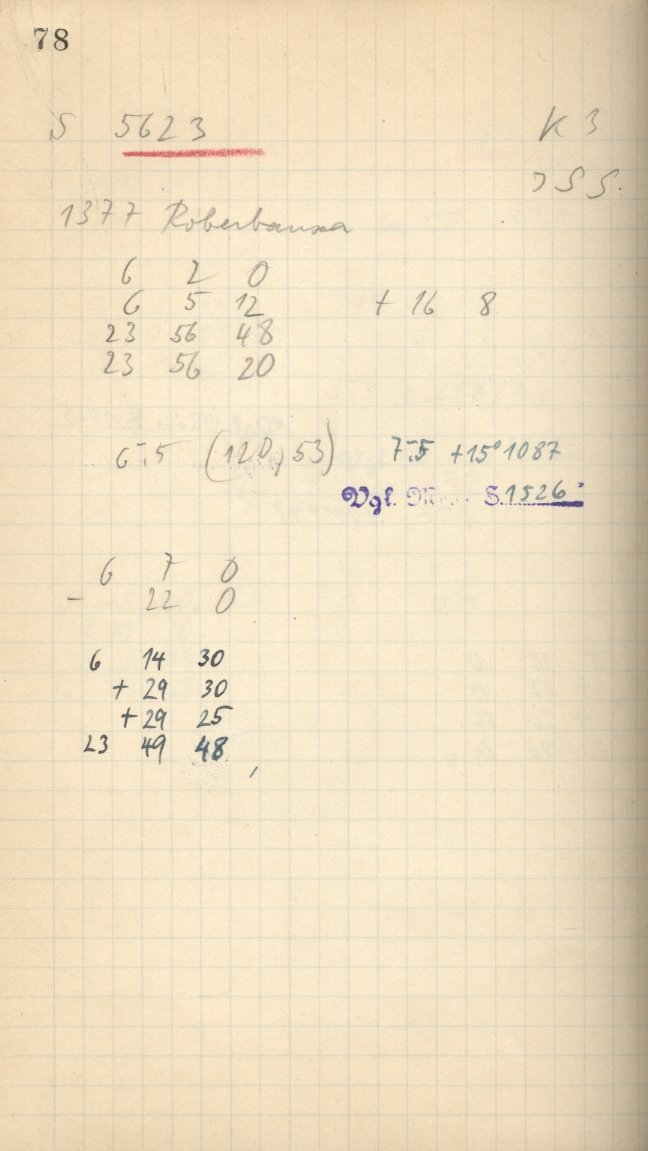 78
S 5623 K 3
1377 Roberbauxa
6 2 0
6 5 12 + 16 8
23 56 48
23 56 20
6.5 (120, 53) 7.5 +15° 1087
Vgl. S. 1526
6 7 0
- 22 0
6 14 30
+ 29 30
+ 29 25
23 49 48